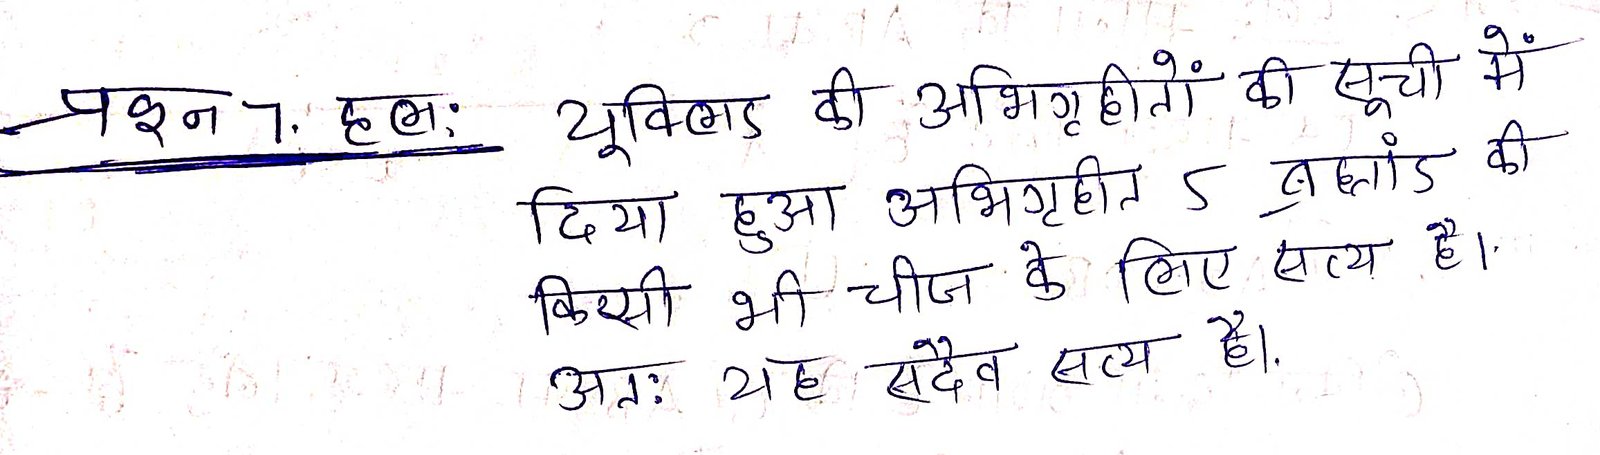 प्रश्न 7. हल: यूक्लिड की अभिगृहीतों की सूची में
दिया हुआ अभिगृहीत 5 ब्रह्मांड की
किसी भी चीज के लिए सत्य है।
अत: यह सदैव सत्य है।